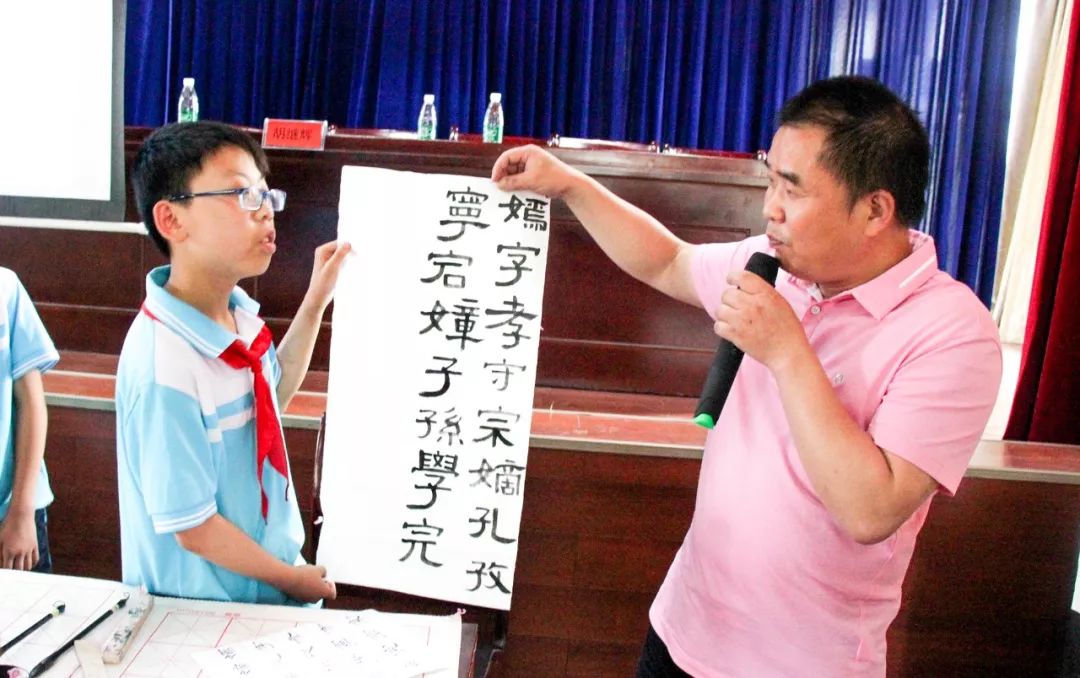 嫣字孝守宗嫡孔孜
寧宕嫜子孫學完
胡继辉